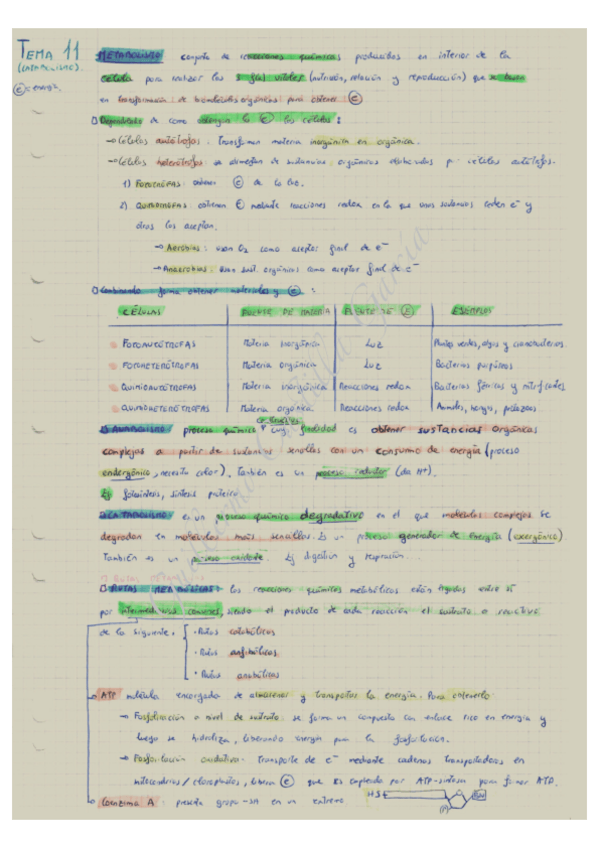 TEMA 11
(CATABOLISMO).
(E) = energía.
METABOLISMO conjunto de reacciones químicas producidas en interior de la
célula para realizar las 3 f(x) vitales (nutrición, relación y reproducción) que se basan
en transformación de biomoléculas orgánicas para obtener (E)
Dependiendo de como obtengan la (E) las células:
→ Células autótrofas: transforman materia inorgánica en orgánica.
→ Células heterótrofas: se alimentan de sustancias orgánicas elaboradas por células autótrofas.
1) FOTOTRÓFAS: obtienen (E) de la luz.
2) QUIMIOTRÓFAS: obtienen (E) mediante reacciones redox en la que unas sustancias ceden e⁻ y
otras las aceptan.
→ Aerobias: usan O2 como aceptor final de e⁻
→ Anaerobias: usan sust. orgánicas como aceptor final de e⁻
Combinando forma obtener materiales y (E):
CÉLULAS FUENTE DE MATERIA FUENTE DE (E) EJEMPLOS
FOTOAUTÓTROFAS Materia inorgánica Luz Plantas verdes, algas y cianobacterias.
FOTOHETERÓTROFAS Materia orgánica Luz Bacterias purpúreas
QUIMIOAUTÓTROFAS Materia inorgánica Reacciones redox Bacterias férricas y nitrificantes
QUIMIOHETERÓTROFAS Materia orgánica Reacciones redox Animales, hongos, protozoos.
ANABOLISMO proceso químico cuya finalidad es obtener sustancias orgánicas
complejas a partir de sustancias sencillas con un consumo de energía (proceso
endergónico, necesita calor). También es un proceso reductor (da H⁺).
Ej fotosíntesis, síntesis proteica
CATABOLISMO es un proceso químico degradativo en el que moléculas complejas se
degradan en moléculas más sencillas. Es un proceso generador de energía (exergónico)
También es un proceso oxidante. Ej digestión y respiración.
RUTAS METABÓLICAS: las reacciones químicas metabólicas están ligadas entre sí
por intermediarios comunes, siendo el producto de cada reacción el sustrato o reactivo
de la siguiente.
• Rutas catabólicas
• Rutas anfibólicas
• Rutas anabólicas
ATP molécula encargada de almacenar y transportar la energía. Para obtenerlo
→ Fosforilación a nivel de sustrato: se forma un compuesto con enlace rico en energía y
luego se hidroliza, liberando energía para la fosforilación.
→ Fosforilación oxidativa: Transporte de e⁻ mediante cadenas transportadoras en
mitocondrias / cloroplastos, libera (E) que es captada por ATP-sintasa para formar ATP.
Coenzima A: presenta grupo -SH en un extremo.
HS
(P)